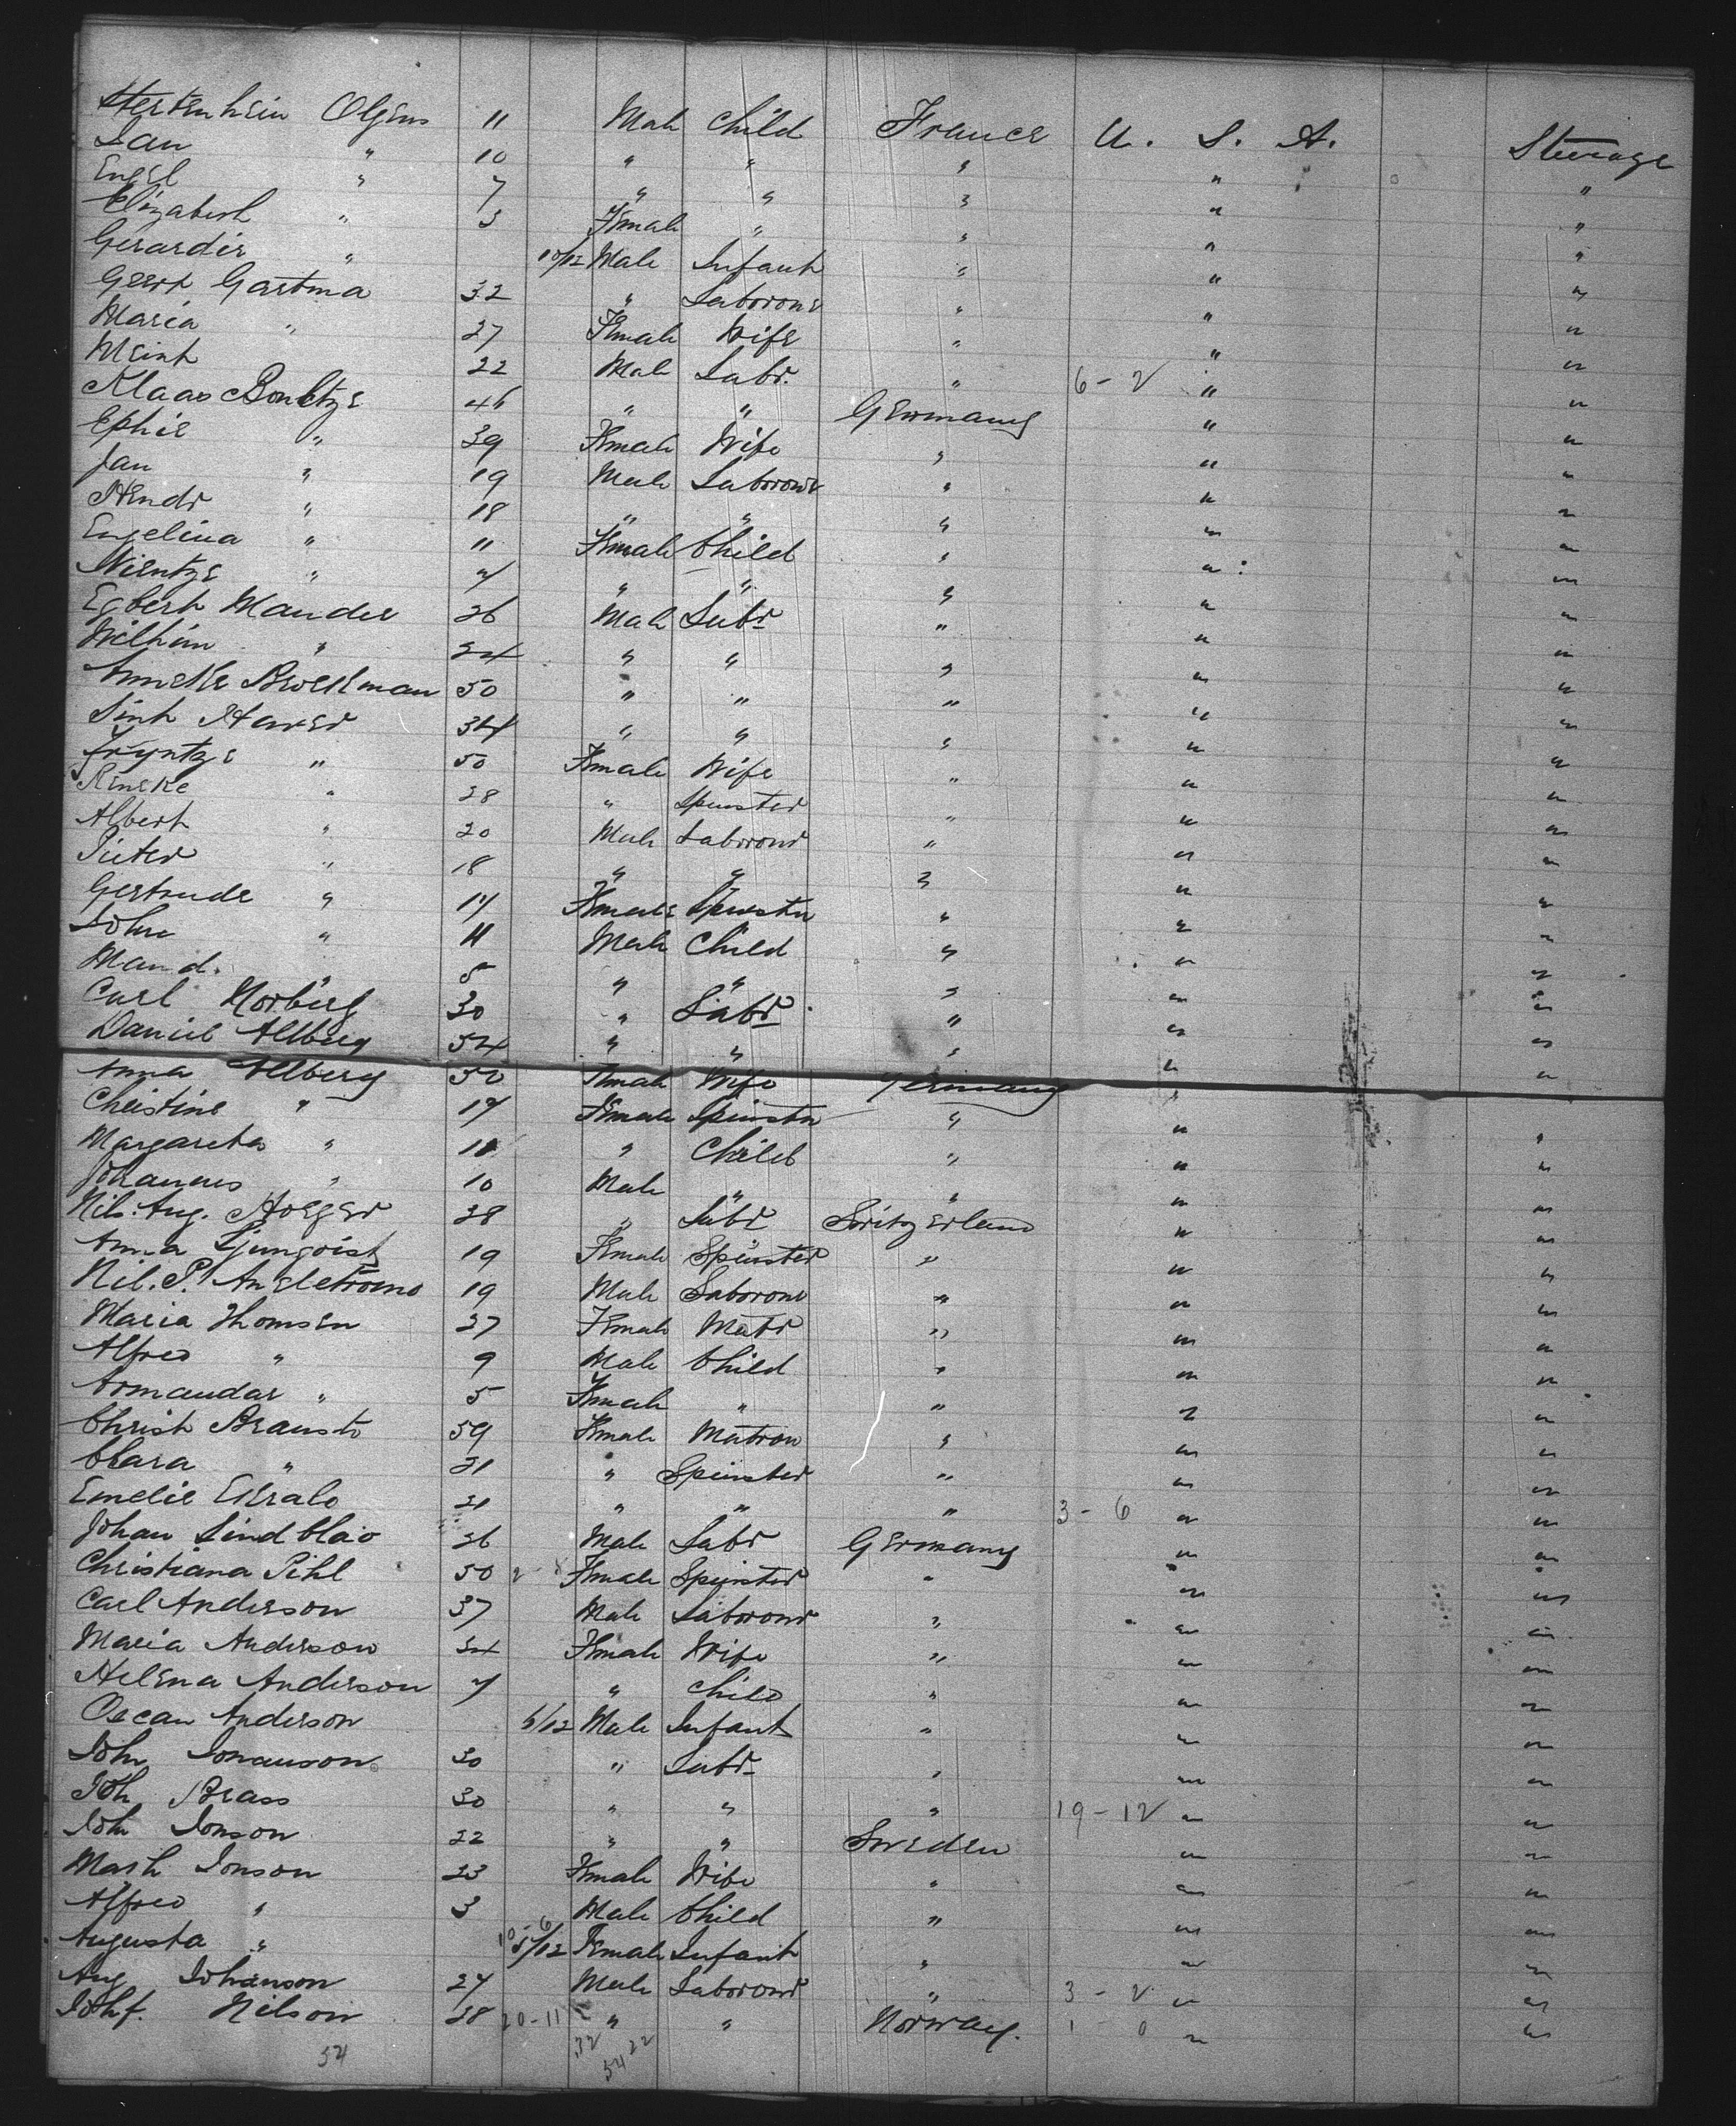 Olgers 11 Male Child France U. S. A. Steerage
Jan " 10 " " " " "
Engel " 7 " " " " "
Elizabeth " 3 Female " " " "
Gerardir " 10/12 Male Infant " " "
Geert Gartma 32 " Labourer " " "
Maria " 27 Female Wife " " "
Meint 22 Male Labr. " 6 - 2 " "
Klaas Bonktze 46 " " Germany " "
Ephie " 39 Female Wife " " "
Jan " 19 Male Labourer " " "
Hendr " 18 " " " " "
Engelina " 11 Female Child " " "
Nientze " 7 " " " " "
Egbert Mander 26 Male Labr " " "
Wilhim " 24 " " " " "
Anneke Broekman 50 " " " " "
Sint Haver 34 " " " " "
Tryntze " 50 Female Wife " " "
Renske " 28 " Spinster " " "
Albert " 20 Male Labourer " " "
Pieter " 18 " " " " "
Gertrude " 14 Female Spinster " " "
John " 11 Male Child " " "
Mand. " 5 " " " " "
Carl Norberg 30 " Labr " " "
Daniel Allberg 54 " " " " "
Anna Allberg 50 Female Wife Germany " "
Christine " 17 Female Spinster " " "
Margareta " 11 " Child " " "
Johannes " 10 Male " " " "
Nils. Aug. Hoeger 28 " Labr Switzerland " "
Anna Ljungvist 19 Female Spinster " " "
Nil. P. 19 Male Labourer " " "
Maria Thomsen 27 Female Matr " " "
Alfred " 9 Male Child " " "
Armandar " 5 Female " " " "
Christ Brausto 59 Female Matron " " "
Clara " 21 " Spinster " " "
Emelie 21 " " " 3 - 6 " "
Johan Lindblad 26 Male Labr Germany " "
Christiana Pihl 50 Female Spinster " " "
Carl Anderson 37 Male Labourer " " "
Maria Anderson 34 Female Wife " " "
Helena Anderson 7 " Child " " "
Oscar Anderson 6/12 Male Infant " " "
Joh Jonauson 30 " Labr " " "
Joh Brass 30 " " " 19 - 12 " "
Joh Jonson 22 " " Sweden " "
Marh Jonson 23 Female Wife " " "
Alfred " 3 Male Child " " "
Augusta " 5/12 Female Infant " " "
Aug Johanson 27 Male Labourer " 3 - 2 " "
Johf. Nilson 28 20-11 " " Norway. 1 0 " "
54 32 22
54